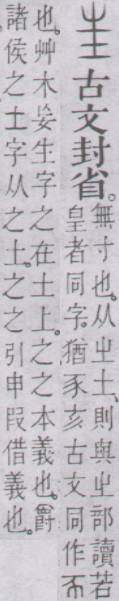 𡉚古文封省。
無寸也。从㞢土、則與㞢部讀若
皇者同字。猶豕亥古文同作𠀅
也。艸木妄生字之在土上。之之本義也。爵
諸侯之土字从之土。之之引申叚借義也。